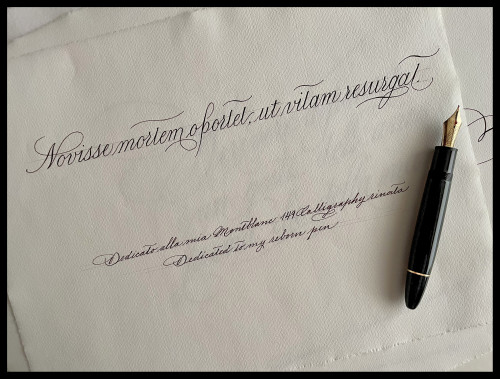 Novisse mortem oportet, ut vitam resurgat.
Dedicato alla mia Montblanc 149 Calligraphy rinata
Dedicated to my reborn pen